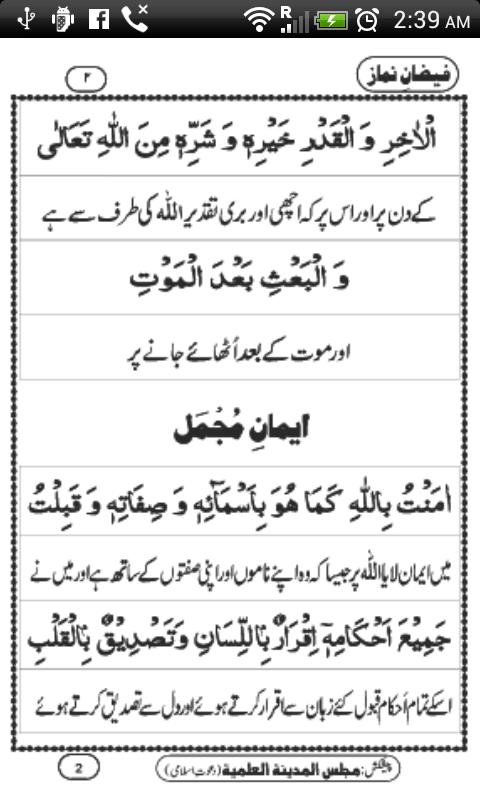 R 2:39 AM
فیضانِ نماز
۲
الْاٰخِرِ وَ الْقَدْرِ خَیْرِهٖ وَ شَرِّهٖ مِنَ اللّٰهِ تَعَالٰی
کے دن پر اور اس پر کہ اچھی اور بری تقدیر اللہ کی طرف سے ہے
وَ الْبَعْثِ بَعْدَ الْمَوْتِ
اور موت کے بعد اُٹھائے جانے پر
ایمانِ مُجْمَل
اٰمَنْتُ بِاللّٰهِ كَمَا هُوَ بِاَسْمَآئِهٖ وَ صِفَاتِهٖ وَ قَبِلْتُ
میں ایمان لایا اللہ پر جیسا کہ وہ اپنے ناموں اور اپنی صفتوں کے ساتھ ہے اور میں نے
جَمِیْعَ اَحْكَامِهٖۤ اِقْرَارٌۢ بِاللِّسَانِ وَتَصْدِیْقٌۢ بِالْقَلْبِ
اسکے تمام اَحکام قبول کئے زبان سے اقرار کرتے ہوئے اور دل سے تصدیق کرتے ہوئے
پیشکش: مجلس المدینۃ العلمیۃ (دعوتِ اسلامی)
2